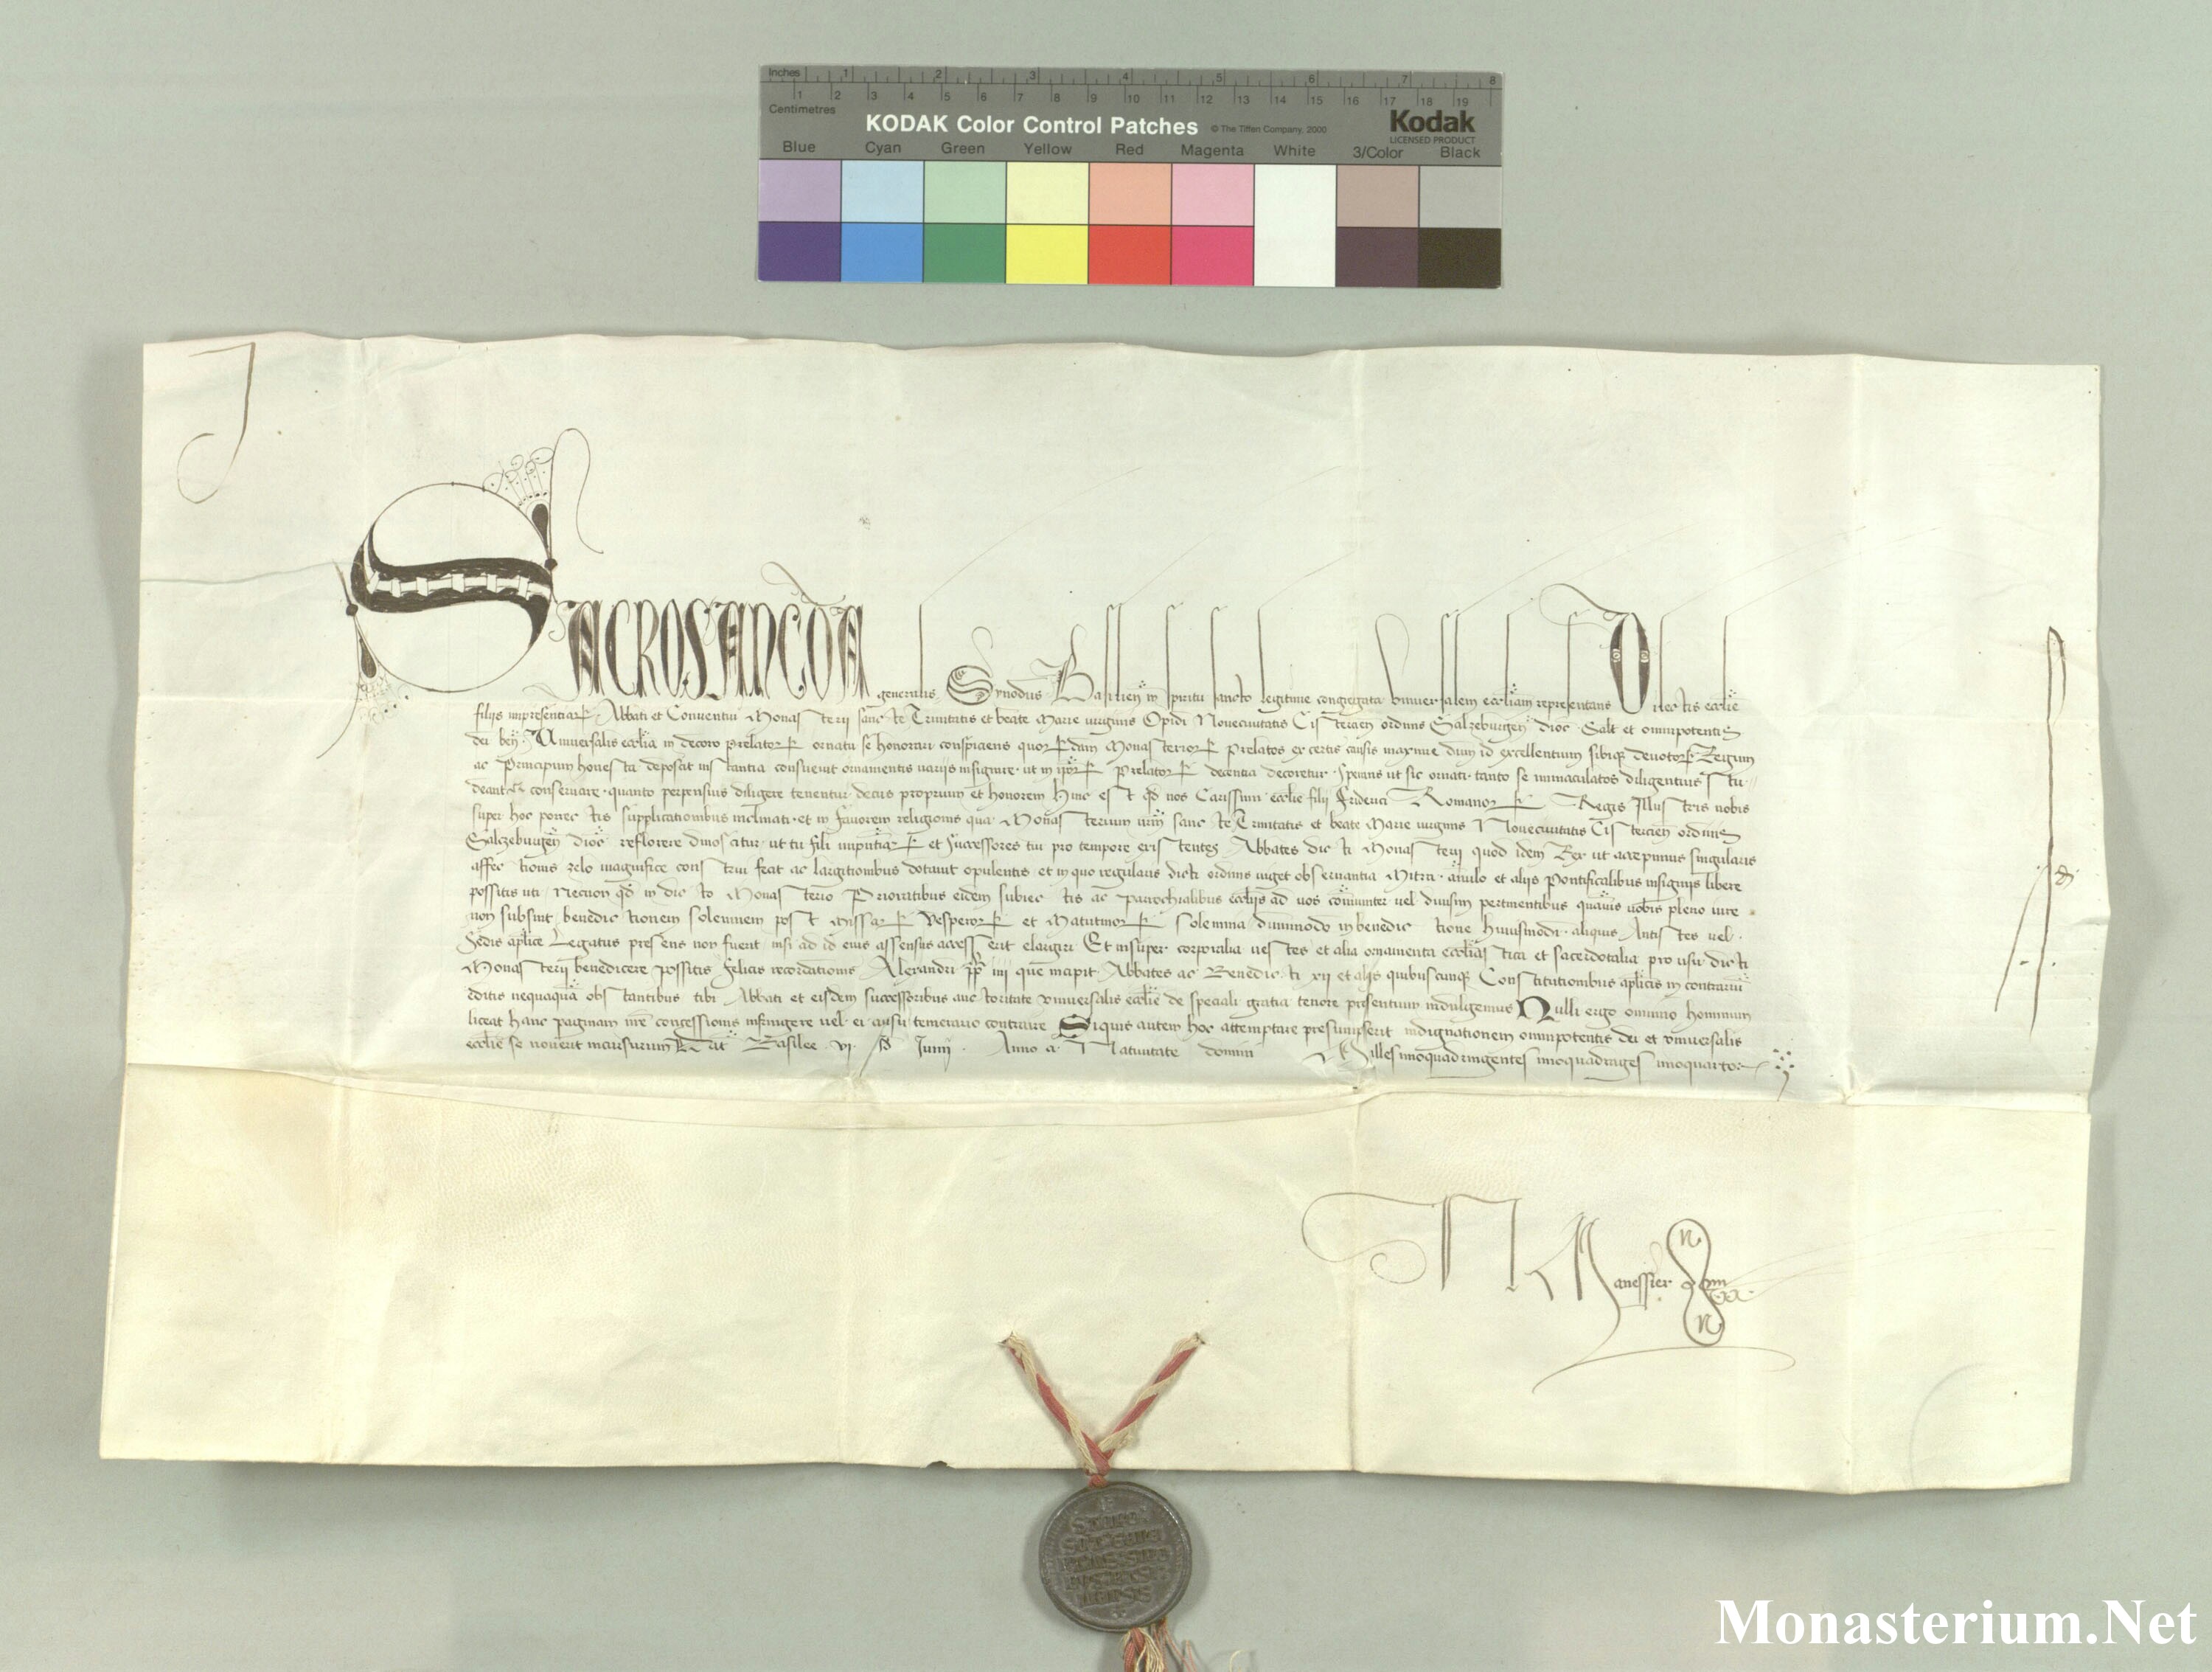 Inches 1 2 3 4 5 6 7 8
Centimetres 1 2 3 4 5 6 7 8 9 10 11 12 13 14 15 16 17 18 19
KODAK Color Control Patches © The Tiffen Company, 2000 Kodak
LICENSED PRODUCT
Blue Cyan Green Yellow Red Magenta White 3/Color Black
SACROSANCTA generalis Synodus Basilien̄ in spiritu sancto legitime congregata vniuersalem eccl̄iam representans Dilectis eccl̄ie
filijs Abbati et Conuentui Monasterii sancte Trinitatis et beate Marie uirginis Opidi Nouecivitatis Cistercien̄ ordinis Salzeburgen̄ dioc̄ Salt̄ et omnipotentis
dei ben̄ Vniuersalis eccl̄ia in decoro prelatorꝝ ornatu se honorari conspiciens quorꝝdam Monasteriorꝝ prelatos ex certis causis maxime dum id excellentium sibiqꝫ deuotorꝝ Regum
ac Principum honesta deposcit instantia consueuit ornamentis uariis insignire ut in prelatorꝝ decentia decoretur sperans ut sic ornati tanto se inmaculatos diligentius stu
deant conseruare quanto perpensius diligere tenentur decus proprium et honorem Hinc est qd̄ nos Carissimi eccl̄ie filii Friderici Romanorꝝ Regis Illustris nobis
super hoc porrectis supplicationibus inclinati et in fauorem religionis qua Monasterium sancte Trinitatis et beate Marie uirginis Nouecivitatis Cistercien̄ ordinis
Salczeburgen̄ dioc̄ reflorere dinoscitur ut tu fili et successores tui pro tempore existentes Abbates dicti Monasterij quod idem Rex ut accepimus singularis
affectionis zelo magnifice construi fecit ac largitionibus dotauit opulentis et in quo regularis dicti ordinis uiget obseruantia Mitra anulo et aliis Pontificalibus insignijs libere
possitis uti Necnon qd̄ in dicto Monasterio Prioratibus eidem subiectis ac parrochialibus eccl̄ijs ad uos com̄uniter uel diuisim pertinentibus quauis uobis pleno iure
non subsint benedictionem solennem post Missarꝝ Vesperorꝝ et Matutinorꝝ solemnia dummodo in benedictione huiusmodi aliquis Antistes uel
Sedis apl̄ice Legatus presens non fuerit nisi ad id eius assensus accesserit elargiri Et insuper corporalia uestes et alia ornamenta eccl̄iastica et sacerdotalia pro usu dicti
Monasterii benedicere possitis felicis recordationis Alexandri pp̄ iiij que incipit Abbates ac Benedicti xij et aliis quibuscunqꝫ Constitutionibus apl̄icis in contrariū
editis nequaquā obstantibus tibi Abbati et eisdem successoribus auctoritate vniuersalis eccl̄ie de speciali gratia tenore presentium indulgemus Nulli ergo omnino hominum
liceat hanc paginam nr̄e concessionis infringere uel ei ausu temerario contraire Siquis autem hoc attemptare presumpserit indignationem omnipotentis dei et vniuersalis
eccl̄ie se nouerit incursurum Dat̄ Basilee vj Id Junij Anno a Natiuitate domini Millesimoquadringentesimoquadragesimoquarto
Manessier
Monasterium.Net